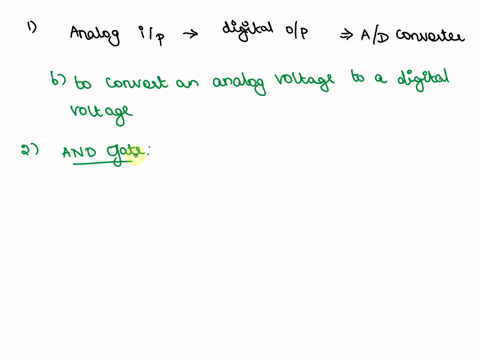 1) Analog i/p → digital o/p ⇒ A/D converter
b) to convert an analog voltage to a digital
voltage
2) AND Gate: